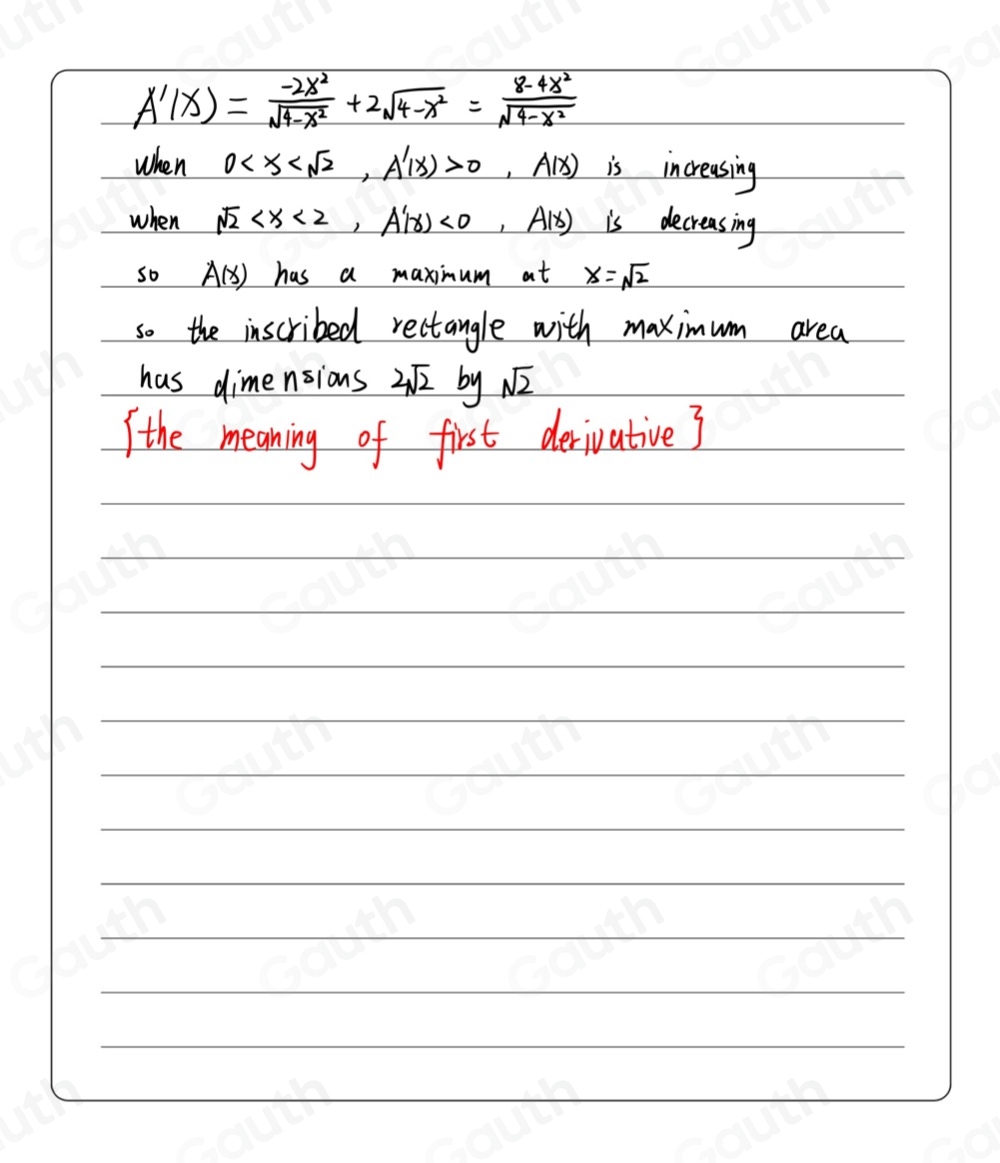 A'(x) = \frac{-2x^2}{\sqrt{4-x^2}} + 2\sqrt{4-x^2} = \frac{8-4x^2}{\sqrt{4-x^2}}
when 0<x<√2 , A'(x)>0 , A(x) is increasing
when √2<x<2 , A'(x)<0 , A(x) is decreasing
so A(x) has a maximum at x=√2
so the inscribed rectangle with maximum area
has dimensions 2√2 by √2
{the meaning of first derivative}